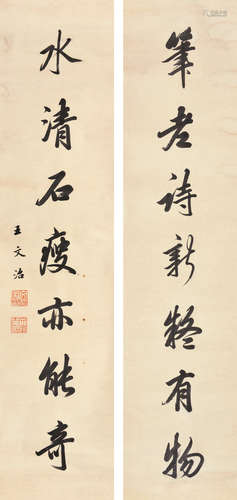 筆老詩新疑有物
水清石瘦亦能奇
王文治